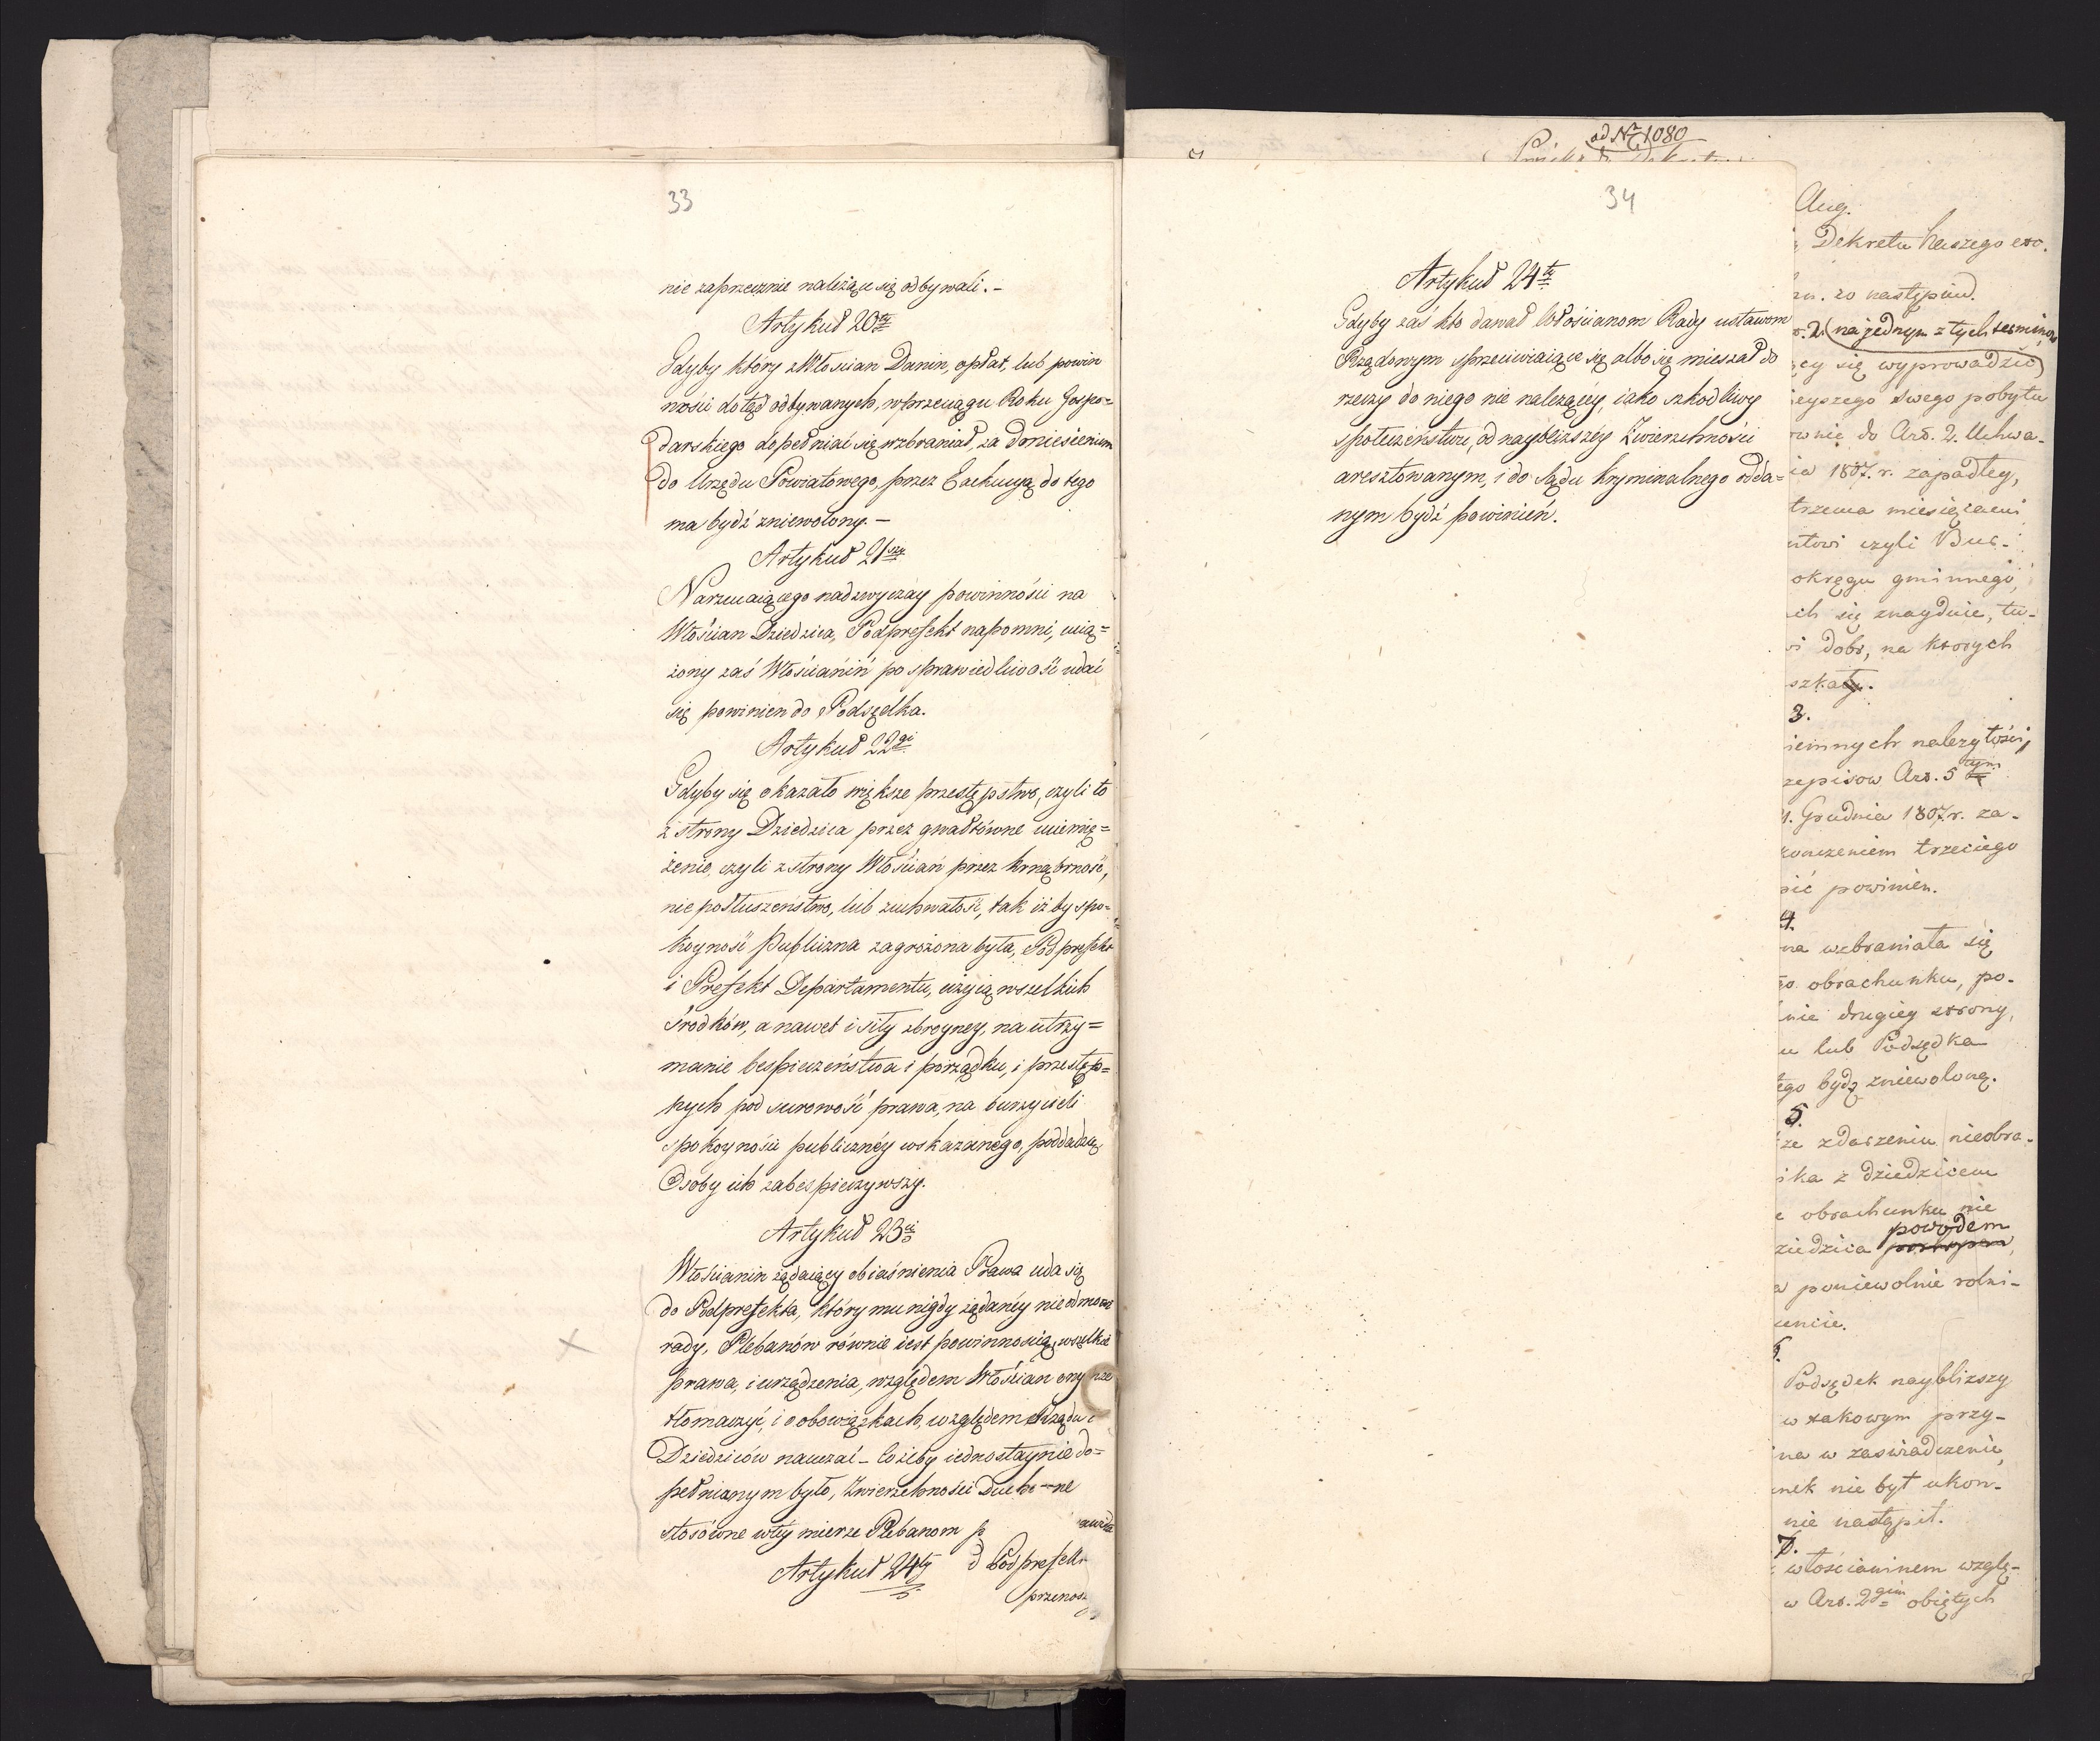 33
nie zaprzecznie należące się odbywali. –
Artykuł 20ty
Gdyby który z Włoscian Danin, opłat, lub powin
nosci dotąd odbywanych, w przeciągu Roku Gospo=
darskiego dopełniać się wzbraniał, za doniesieniem
do Urzędu Powiatowego, przez Exekucyą do tego
ma bydź zniewolony. –
Artykuł 21szy
Narzucaiącego nadzwyczay powinności na
Włoscian Dziedzica, Podprefekt napomni, ucią=
żony zaś Włościanin po sprawiedliwość udać
się powinien do Podsędka.
Artykuł 22gi
Gdyby się okazało większe przestępstwo, czyli to
z strony Dziedzica przez gwałtowne uciemię=
żenie, czyli z strony Włościan przez krnąbrność,
nieposłuszeństwo, lub zuchwałość, tak iż by spo=
koyność Publiczna zagrożona była, Podprefekt
i Prefekt Departamentu, użyią wszelkich
środków, a nawet i siły zbroyney, na utrzy=
manie bespieczeństwa i porządku, i przestęp=
nych pod surowość prawa, na burzycieli
spokoyności publicznéy wskazanego, poddadzą,
Osoby ich zabespieczywszy.
Artykuł 23ci
Włościanin żądaiący obiaśnienia Prawa uda się
do Podprefekta, który mu nigdy żądanéy nie odmowi
rady, Plebanów równie iest powinnoscią, wszelkie
prawa, i urządzenia, względem Włościan onymże
tłomaczyć, i o obowiązkach, względem Rządu i
Dziedziców nauczać – Co żeby iednostaynie do=
pełnianym było, Zwierzchności Ducho-ne
stosowne w téy mierze Plebanom p
Artykuł 24ty d Podprefekt
przenosz
ad Nr 1080
34
Artykuł 24ty
Gdyby zaś kto dawał Włościanom Rady ustawom
Rządowym sprzeciwiaiące się albo się mieszał do
rzeczy do niego nie należącéy, iako szkodliwy
społeczeństwu, od naybliższéy Zwierzchności
aresztowanym, i do Sądu kryminalnego odda=
nym bydź powinien.
Aug.
Dekretu Naszego etc.
co następuie.
2. (na jednym z tych terminow
cy się wyprowadzić)
ieyszego swego pobytu
ownie do Art. 2. Uchwa-
ia 1807. r. zapadłey,
trzema miesiącami
ntowi czyli Bur-
okręgu gminnego,
ch się znayduie, tu-
i dobr, na ktorych
szkały.
3.
iemnych należytości,
zepisow Art. 5tym
1. Grudnia 1807. r. za-
kończeniem trzeciego
pić powinien.
4.
na wzbraniała się
go obrachunku, po-
nie drugiey strony,
u lub Podsędka
tego bydź zniewoloną.
5.
ze zdarzeniu nieobra-
ika z dziedzicem
e obrachunku nie
powodem
ziedzica
a poniewolnie rolni-
6.
Podsędek naybliższy
w takowym przy-
na w zaswiadczenie,
nek nie był ukon-
nie nastąpił.
7.
włościaninem wzglę-
w Art. 2gim obiętych